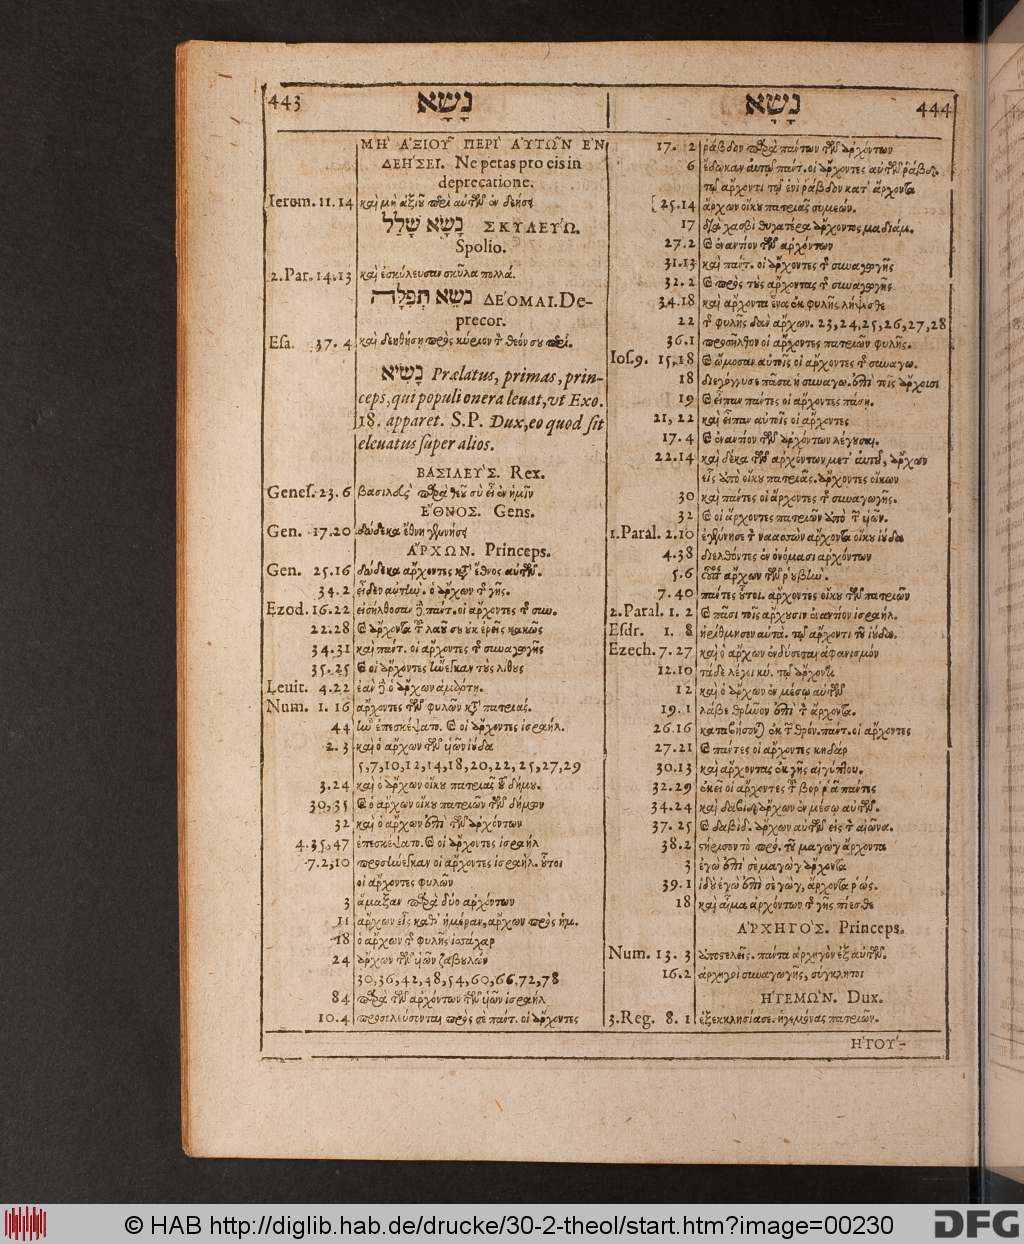 443 נָשָׂא
ΜΗ' ἈΞΙΟΥ͂ ΠΕΡΙ' ἈΥΤΩ͂Ν ἘΝ
ΔΕΗ'ΣΕΙ. Ne petas pro eis in
deprecatione.
Ierem. 11. 14 καὶ μὴ ἀξιοῦ περὶ αὐτῶν ἐν δεήσει
נָשָׂא שָׁלַל ΣΚΥΛΕΥ'Ω.
Spolio.
2. Par. 14. 13 καὶ ἐσκύλευσαν σκῦλα πολλά.
נָשָׂא תְפִלָּה ΔΕ'ΟΜΑΙ. De-
precor.
Esa. 37. 4 καὶ δεηθήσῃ πρὸς κύριον τ θεόν σου περὶ.
נָשִׂיא Prælatus, primas, prin-
ceps, qui populi onera leuat, vt Exo.
18. apparet. S.P. Dux, eo quod sit
eleuatus super alios.
ΒΑΣΙΛΕΥ'Σ. Rex.
Genes. 23. 6 βασιλεὺς παρὰ θεοῦ σὺ εἶ ἐν ἡμῖν
ἘΘΝΟΣ. Gens.
Gen. 17. 20 δώδεκα ἔθνη γεννήσει
ἈΡΧΩΝ. Princeps.
Gen. 25. 16 δώδεκα ἄρχοντες κατ' ἔθνος αὐτῶν.
34. 2 εἶδεν αὐτὴν. ὁ ἄρχων τ γῆς.
Exod. 16. 22 εἰσήλθοσαν δὲ πάντ. οἱ ἄρχοντες τ συν.
22. 28 καὶ ἄρχοντα τ λαοῦ σου οὐκ ἐρεῖς κακῶς
34. 31 καὶ πάντ. οἱ ἄρχοντες τ συναγωγῆς
35. 25 καὶ οἱ ἄρχοντες ἤνεγκαν τοὺς λίθους
Leuit. 4. 22 ἐὰν δὲ ὁ ἄρχων ἁμάρτῃ.
Num. 1. 16 ἄρχοντες τῶν φυλῶν κατὰ πατριάς.
44 ἣν ἐπεσκέψατο. καὶ οἱ ἄρχοντες ἰσραήλ.
2. 3 καὶ ὁ ἄρχων τῶν υἱῶν ἰούδα
5, 7, 10, 12, 14, 18, 20, 22, 25, 27, 29
3. 24 καὶ ὁ ἄρχων οἴκου πατριᾶς τοῦ δήμου.
30, 35 καὶ ὁ ἄρχων οἴκου πατριῶν τῶν δήμων
32 καὶ ὁ ἄρχων ἐπὶ τῶν ἀρχόντων
4. 35, 47 ἐπεσκέψατο. καὶ οἱ ἄρχοντες ἰσραήλ
7. 2, 10 προσήνεγκαν οἱ ἄρχοντες ἰσραήλ. οὗτοι
οἱ ἄρχοντες φυλῶν
3 ἅμαξαν παρὰ δύο ἀρχόντων
11 ἄρχων εἷς καθ' ἡμέραν, ἄρχων πρὸς ἡμ.
18 ὁ ἄρχων τ φυλῆς ἰσσάχαρ
24 ἄρχων τῶν υἱῶν ζαβουλών
30, 36, 42, 48, 54, 60, 66, 72, 78
84 παρὰ τῶν ἀρχόντων τῶν υἱῶν ἰσραήλ
10. 4 προσελεύσονται πρὸς σὲ πάντ. οἱ ἄρχοντες
נָשָׂא 444
17. 2 ῥάβδον παρὰ πάντων τῶν ἀρχόντων
6 ἔδωκαν αὐτῷ πάντ. οἱ ἄρχοντες αὐτῶν ῥάβδ.
τῷ ἄρχοντι τῷ ἑνὶ ῥάβδον κατ' ἄρχοντα
[25. 14 ἄρχων οἴκου πατριᾶς συμεών.
17 διὰ χασβὶ θυγατέρα ἄρχοντος μαδιάμ.
27. 2 καὶ ἐναντίον τῶν ἀρχόντων
31. 13 καὶ πάντ. οἱ ἄρχοντες τ συναγωγῆς
32. 2 καὶ πρὸς τοὺς ἄρχοντας τ συναγωγῆς
34. 18 καὶ ἄρχοντα ἕνα ἐκ φυλῆς λήψεσθε
22 τ φυλῆς δαν ἄρχων. 23, 24, 25, 26, 27, 28
36. 1 προσῆλθον οἱ ἄρχοντες πατριῶν φυλῆς.
Ios. 9. 15, 18 καὶ ὤμοσαν αὐτοῖς οἱ ἄρχοντες τ συναγω.
18 διεγόγγυσε πᾶσα ἡ συναγω. ἐπὶ τοῖς ἄρχουσι
19 καὶ εἶπαν πάντες οἱ ἄρχοντες πάσῃ.
21, 22 καὶ εἶπαν αὐτοῖς οἱ ἄρχοντες
17. 4 καὶ ἐναντίον τῶν ἀρχόντων λέγουσαι.
22. 14 καὶ δέκα τῶν ἀρχόντων μετ' αὐτοῦ, ἄρχων
εἷς ἀπὸ οἴκου πατριᾶς. ἄρχοντες οἴκων
30 καὶ πάντες οἱ ἄρχοντες τ συναγωγῆς.
32 καὶ οἱ ἄρχοντες πατριῶν ἀπὸ τ υἱῶν.
1. Paral. 2. 10 ἐγέννησε τ ναασσὼν ἄρχοντα οἴκου ἰούδα
4. 38 διελθόντες ἐν ὀνόμασι ἀρχόντων
5. 6 οὗτος ἄρχων τῶν ῥουβήν.
7. 40 πάντες οὗτοι. ἄρχοντες οἴκου τῶν πατριῶν
2. Paral. 1. 2 καὶ πᾶσι τοῖς ἄρχουσιν ἐναντίον ἰσραήλ.
Esdr. 1. 8 ἠρίθμησεν αὐτὰ. τῷ ἄρχοντι τοῦ ἰούδα.
Ezech. 7. 27 καὶ ὁ ἄρχων ἐνδύσεται ἀφανισμόν
12. 10 τάδε λέγει κύ. τῷ ἄρχοντι
12 καὶ ὁ ἄρχων ἐν μέσῳ αὐτῶν
19. 1 λάβε θρῆνον ἐπὶ τ ἄρχοντα.
26. 16 καταβήσονται ἐκ τ θρόν. πάντ. οἱ ἄρχοντες
27. 21 καὶ πάντες οἱ ἄρχοντες κηδάρ
30. 13 καὶ ἄρχοντας ἐκ γῆς αἰγύπτου.
32. 29 ἐκεῖ οἱ ἄρχοντες τ βορρᾶ πάντες
34. 24 καὶ δαβὶδ ἄρχων ἐν μέσῳ αὐτῶν.
37. 25 καὶ δαβίδ. ἄρχων αὐτῶν εἰς τ αἰῶνα.
38. 2 στήρισον τὸ προσ. τοῦ μαγωγ ἄρχοντα
3 ἐγὼ ἐπὶ σὲ μαγὼγ ἄρχοντα
39. 1 ἰδοὺ ἐγὼ ἐπὶ σὲ γὼγ, ἄρχοντα ῥώς.
18 καὶ αἷμα ἀρχόντων τ γῆς πίεσθε
ἈΡΧΗΓΟ'Σ. Princeps.
Num. 13. 3 ἀποστελεῖς. πάντα ἀρχηγὸν ἐξ αὐτῶν.
16. 2 ἀρχηγοὶ συναγωγῆς, σύγκλητοι
ἩΓΕΜΩ'Ν. Dux.
3. Reg. 8. 1 ἐξεκκλησίασε. ἡγεμόνας πατριῶν.
ἩΓΟΥ'-
© HAB http://diglib.hab.de/drucke/30-2-theol/start.htm?image=00230
DFG